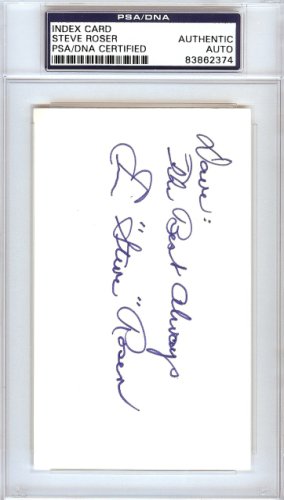 PSA/DNA
INDEX CARD
STEVE ROSER
PSA/DNA CERTIFIED
AUTHENTIC
AUTO
83862374
Dave:
The Best Always
"Steve" Roser